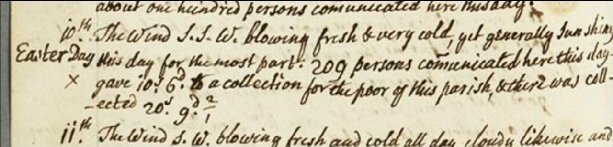 about one hundred persons comunicated here this day.
10th. The Wind S.S.W. blowing fresh & very cold, yet generally Sun shiny
Easter Day this day for the most part: 209 persons comunicated here this day-
× gave 10s. 6d. to a collection for the poor of this parish, & there was coll-
-ected 20s. 9d.
11th. The Wind S.W. blowing fresh and cold all day cloudy likewise and